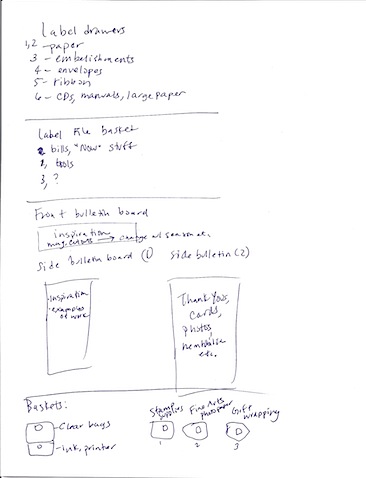 Label drawers
1,2 - paper
3 - embelishments
4 - envelopes
5 - ribbon
6 - CDs, manuals, large paper
Label File basket
2 bills, "Now" stuff
1, tools
3, ?
Front bulletin board
inspiration
mag. cutouts → change w/ season etc.
Side bulletin board (1) Side bulletin (2)
inspiration
examples of work
Thank Yous,
cards,
photos,
etc.
Baskets:
Clear bags
ink, printer
Stamp supplies
1
Fine Arts photo paper
2
Gift wrapping
3